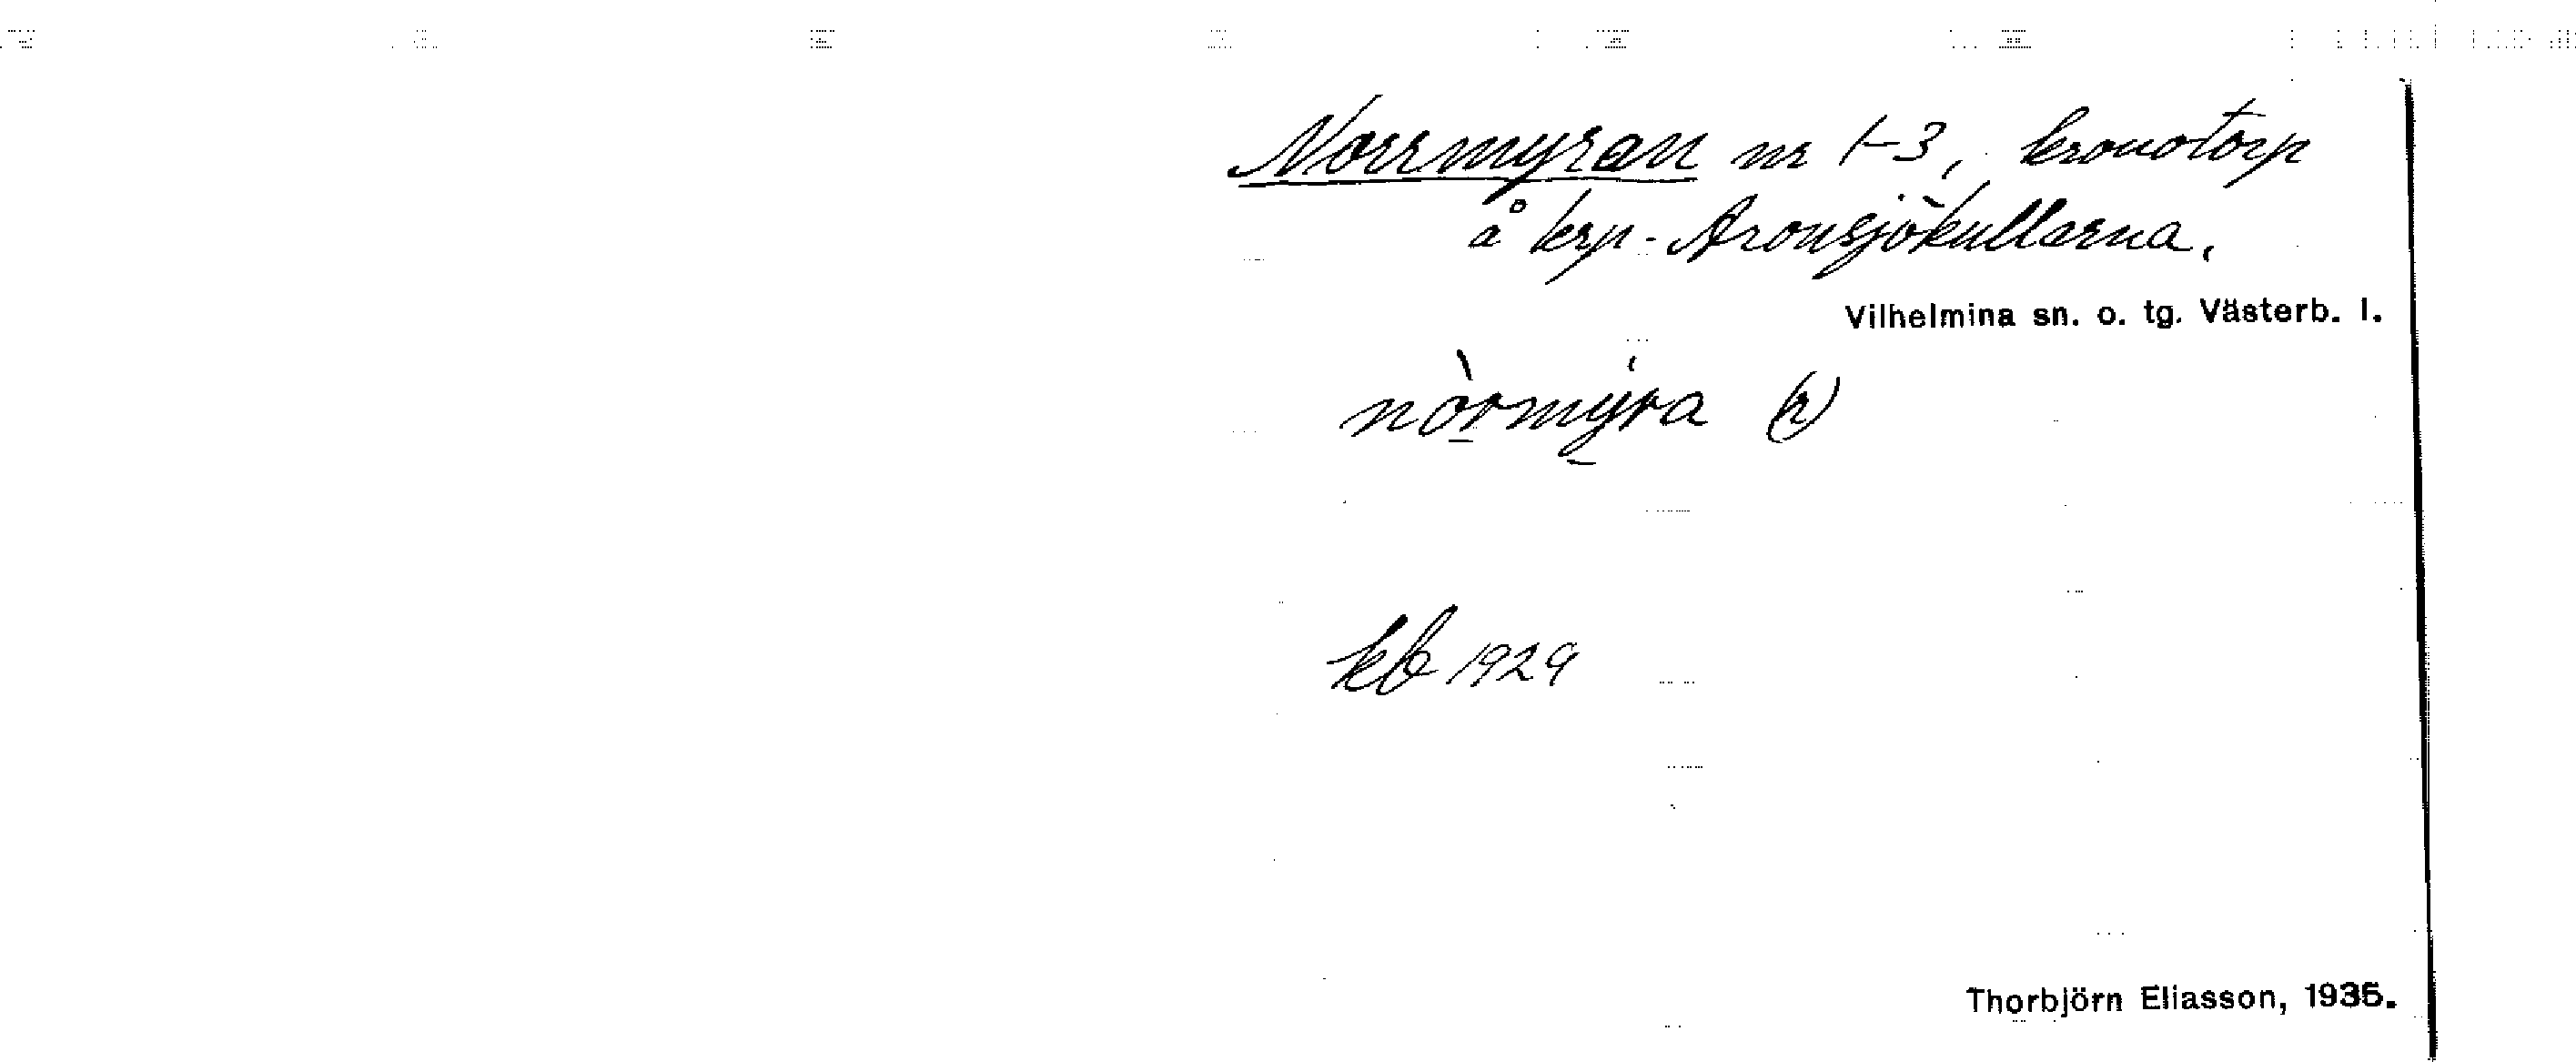 Norrmyran nr 1-3, kronotorp
å krp. Aronsjökullarna.
Vilhelmina sn. o. tg. Västerb. l.
nòrmýra (r)
kb 1929
Thorbjörn Eliasson, 1935.